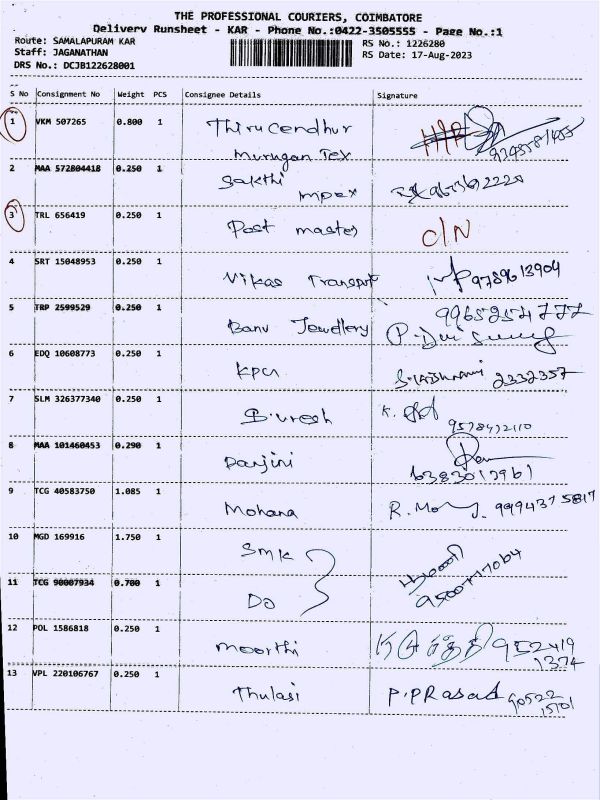 THE PROFESSIONAL COURIERS, COIMBATORE
Delivery Runsheet - KAR - Phone No.:0422-3505555 - Page No.:1
Route: SAMALAPURAM KAR RS No.: 1226280
Staff: JAGANATHAN RS Date: 17-Aug-2023
DRS No.: DCJB122628001
S No Consignment No Weight PCS Consignee Details Signature
1 VKM 507265 0.800 1 Thirucendhur
Murugan Tex
2 MAA 572804418 0.250 1 Sakthi
mpex
3 TRL 656419 0.250 1 Post master O/N
4 SRT 15048953 0.250 1 Vikas Transport 9789613904
5 TRP 2599529 0.250 1 Banu Jewellery 9965254777
6 EDQ 10608773 0.250 1 KPM 2332357
7 SLM 326377340 0.250 1 Suresh K.
9578472110
8 MAA 101460453 0.290 1 Ranjini
9 TCG 40583750 1.085 1 Mohana R. 9994375817
10 MGD 169916 1.750 1 SMK
11 TCG 90007934 0.700 1 Do
12 POL 1586818 0.250 1 Moorthi 952419
1374
13 VPL 220106767 0.250 1 Thulasi P.PRasad 90522
15701